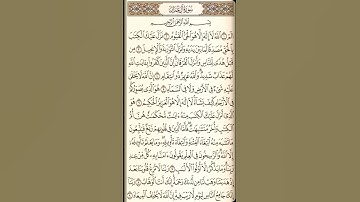 سُورَةُ آلِ عِمْرَانَ
بِسْمِ ٱللَّهِ ٱلرَّحْمَٰنِ ٱلرَّحِيمِ
الٓمٓ ١ ٱللَّهُ لَآ إِلَٰهَ إِلَّا هُوَ ٱلْحَىُّ ٱلْقَيُّومُ ٢ نَزَّلَ عَلَيْكَ ٱلْكِتَٰبَ
بِٱلْحَقِّ مُصَدِّقًا لِّمَا بَيْنَ يَدَيْهِ وَأَنزَلَ ٱلتَّوْرَىٰةَ وَٱلْإِنجِيلَ ٣
قَبْلُ هُدًى لِّلنَّاسِ وَأَنزَلَ ٱلْفُرْقَانَ إِنَّ ٱلَّذِينَ كَفَرُوا۟ بِـَٔايَٰتِ ٱللَّهِ
لَهُمْ عَذَابٌ شَدِيدٌ وَٱللَّهُ عَزِيزٌ ذُو ٱنتِقَامٍ ٤ إِنَّ ٱللَّهَ لَا يَخْفَىٰ
عَلَيْهِ شَىْءٌ فِى ٱلْأَرْضِ وَلَا فِى ٱلسَّمَآءِ ٥ هُوَ ٱلَّذِى يُصَوِّرُكُمْ
فِى ٱلْأَرْحَامِ كَيْفَ يَشَآءُ لَآ إِلَٰهَ إِلَّا هُوَ ٱلْعَزِيزُ ٱلْحَكِيمُ ٦
ٱلَّذِىٓ أَنزَلَ عَلَيْكَ ٱلْكِتَٰبَ مِنْهُ ءَايَٰتٌ مُّحْكَمَٰتٌ هُنَّ أُمُّ
ٱلْكِتَٰبِ وَأُخَرُ مُتَشَٰبِهَٰتٌ فَأَمَّا ٱلَّذِينَ فِى قُلُوبِهِمْ زَيْغٌ فَيَتَّبِعُونَ
مَا تَشَٰبَهَ مِنْهُ ٱبْتِغَآءَ ٱلْفِتْنَةِ وَٱبْتِغَآءَ تَأْوِيلِهِۦ وَمَا يَعْلَمُ تَأْوِيلَهُۥٓ
إِلَّا ٱللَّهُ وَٱلرَّٰسِخُونَ فِى ٱلْعِلْمِ يَقُولُونَ ءَامَنَّا بِهِۦ كُلٌّ مِّنْ عِندِ
رَبِّنَا وَمَا يَذَّكَّرُ إِلَّآ أُو۟لُوا۟ ٱلْأَلْبَٰبِ ٧ رَبَّنَا لَا تُزِغْ قُلُوبَنَا بَعْدَ
إِذْ هَدَيْتَنَا وَهَبْ لَنَا مِن لَّدُنكَ رَحْمَةً إِنَّكَ أَنتَ ٱلْوَهَّابُ ٨
رَبَّنَآ إِنَّكَ جَامِعُ ٱلنَّاسِ لِيَوْمٍ لَّا رَيْبَ فِيهِ إِنَّ ٱللَّهَ لَا يُخْلِفُ ٱلْمِيعَادَ ٩